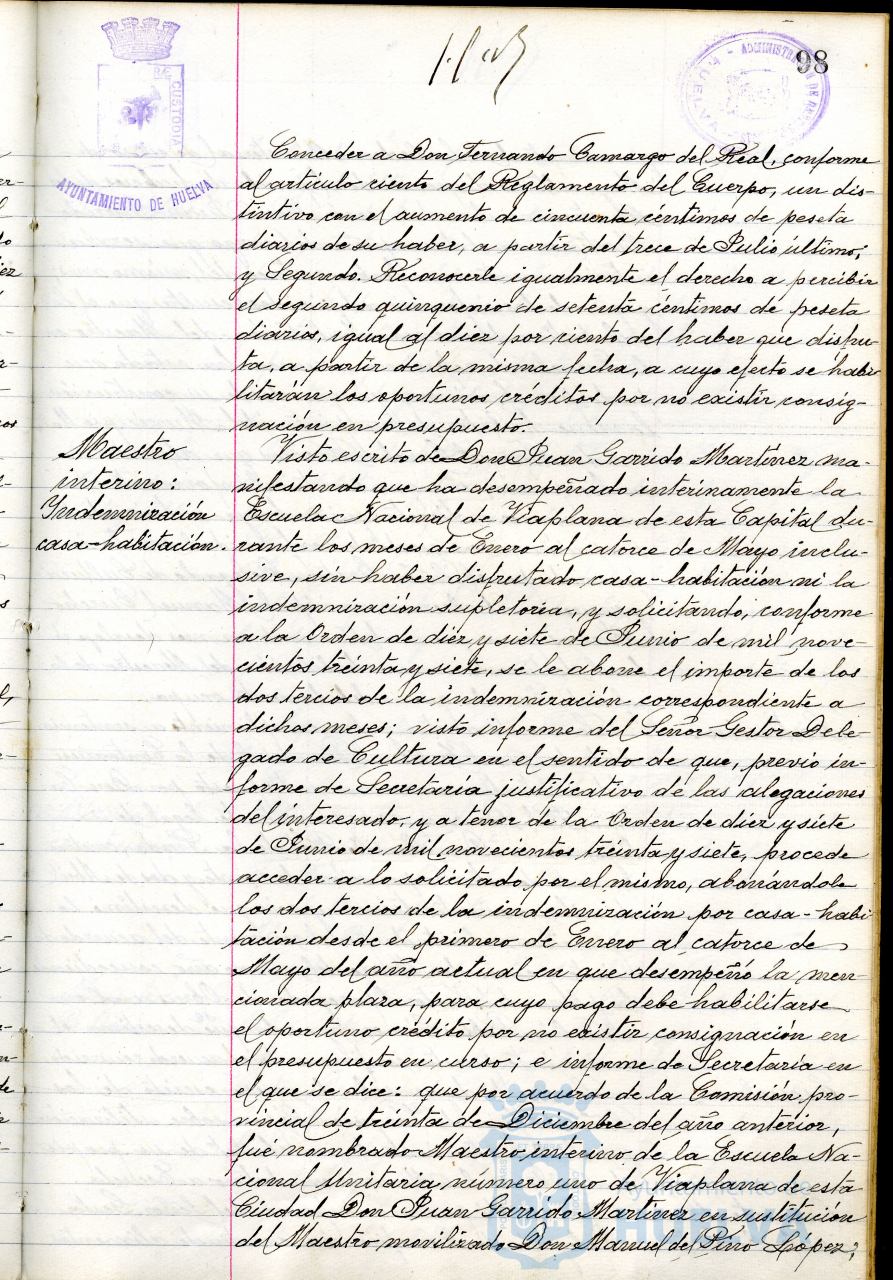 98
CUSTODIA
AYUNTAMIENTO DE HUELVA
HUELVA - ADMINISTRA
Conceder a Don Fernando Camargo del Real, conforme
al artículo ciento del Reglamento del Cuerpo, un dis-
tintivo con el aumento de cincuenta céntimos de peseta
diarios de su haber, a partir del trece de Julio último;
y Segundo. Reconocerle igualmente el derecho a percibir
el segundo quinquenio de setenta céntimos de peseta
diarios, igual al diez por ciento del haber que disfru-
ta, a partir de la misma fecha, a cuyo efecto se habi-
litarán los oportunos créditos por no existir consig-
nación en presupuesto.
Maestro
interino:
Indemnización
casa-habitación.
Visto escrito de Don Juan Garrido Martínez ma-
nifestando que ha desempeñado interinamente la
Escuela Nacional de Viaplana de esta Capital du-
rante los meses de Enero al catorce de Mayo inclu-
sive, sin haber disfrutado casa-habitación ni la
indemnización supletoria, y solicitando, conforme
a la Orden de diez y siete de Junio de mil nove-
cientos treinta y siete, se le abone el importe de los
dos tercios de la indemnización correspondiente a
dichos meses; visto informe del Señor Gestor Dele-
gado de Cultura en el sentido de que, previo in-
forme de Secretaría justificativo de las alegaciones
del interesado, y a tenor de la Orden de diez y siete
de Junio de mil novecientos treinta y siete, procede
acceder a lo solicitado por el mismo, abonándole
los dos tercios de la indemnización por casa-habi-
tación desde el primero de Enero al catorce de
Mayo del año actual en que desempeñó la men-
cionada plaza, para cuyo pago debe habilitarse
el oportuno crédito por no existir consignación en
el presupuesto en curso; e informe de Secretaría en
el que se dice: que por acuerdo de la Comisión pro-
vincial de treinta de Diciembre del año anterior,
fué nombrado Maestro interino de la Escuela Na-
cional Unitaria número uno de Viaplana de esta
Ciudad Don Juan Garrido Martínez en sustitución
del Maestro movilizado Don Manuel del Pino López;